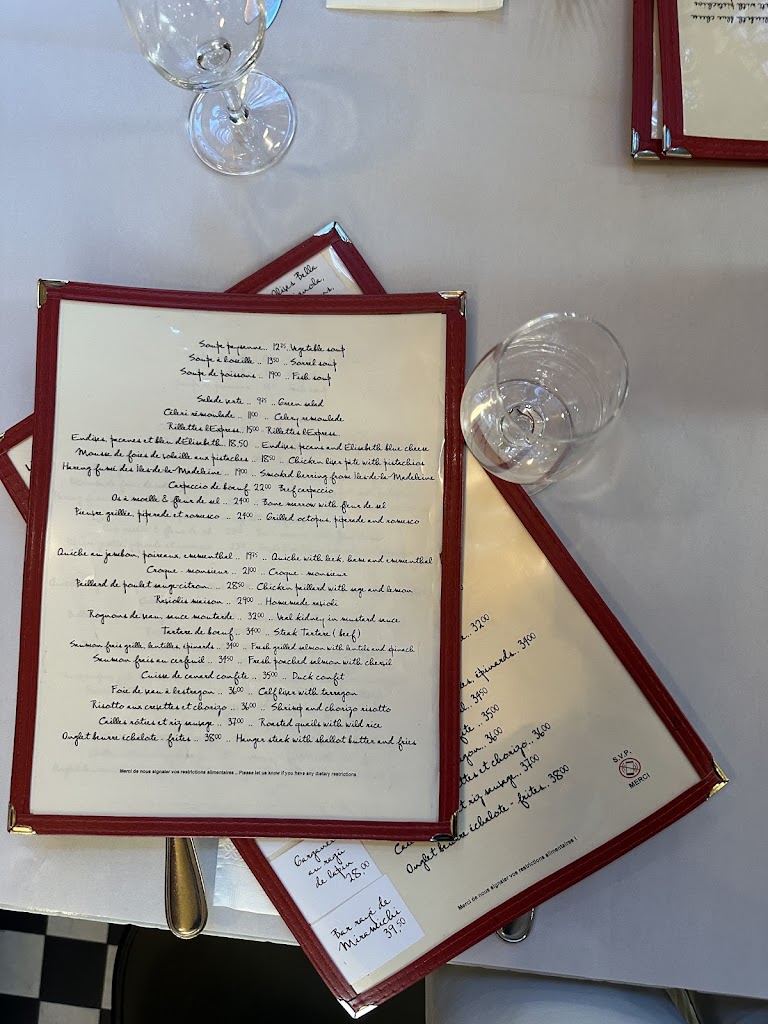 Soupe paysanne .. 12 75 .. Vegetable soup
Soupe à l'oseille .. 13 50 .. Sorrel soup
Soupe de poissons .. 19 00 .. Fish soup
Salade verte .. 9 75 .. Green salad
Céleri rémoulade .. 11 00 .. Celery remoulade
Rillettes l'Express .. 15 00 .. Rillettes l'Express
Endives, pacanes et bleu d'Elisabeth .. 18.50 .. Endives, pecans and Elisabeth blue cheese
Mousse de foies de volaille aux pistaches .. 18 50 .. Chicken liver pate with pistachios
Hareng fumé des Iles-de-la-Madeleine .. 19 00 .. Smoked herring from Iles-de-la-Madeleine
Carpaccio de boeuf 22 00 Beef carpaccio
Os à moelle & fleur de sel .. 24 00 .. Bone marrow with fleur de sel
Pieuvre grillée, piperade et romesco .. 24 00 .. Grilled octopus, piperade and romesco
Quiche au jambon, poireaux, emmenthal .. 19 75 .. Quiche with leek, ham and emmenthal
Croque-monsieur .. 21 00 .. Croque-monsieur
Paillard de poulet sauge-citron .. 28 50 .. Chicken paillard with sage and lemon
Raviolis maison .. 29 00 .. Homemade ravioli
Rognons de veau, sauce moutarde .. 32 00 .. Veal kidney in mustard sauce
Tartare de boeuf .. 34 00 .. Steak Tartare (beef)
Saumon frais grillé, lentilles, épinards .. 34 00 .. Fresh grilled salmon with lentils and spinach
Saumon frais au cerfeuil .. 34 50 .. Fresh poached salmon with chervil
Cuisse de canard confite .. 35 00 .. Duck confit
Foie de veau à l'estragon .. 36 00 .. Calf liver with tarragon
Risotto aux crevettes et chorizo .. 36 00 .. Shrimp and chorizo risotto
Cailles rôties et riz sauvage .. 37 00 .. Roasted quails with wild rice
Onglet beurre échalote - frites .. 38 00 .. Hanger steak with shallot butter and fries
Merci de nous signaler vos restrictions alimentaires .. Please let us know if you have any dietary restrictions
.. 32 00
épinards .. 34 00
34 50
.. 35 00
36 00
et chorizo .. 36 00
riz sauvage .. 37 00
Onglet beurre échalote - frites .. 38 00
Merci de nous signaler vos restrictions alimentaires !
S.V.P.
MERCI
au ragú
de lapin
28,00
Bar rayé de
Miramichi
39,50